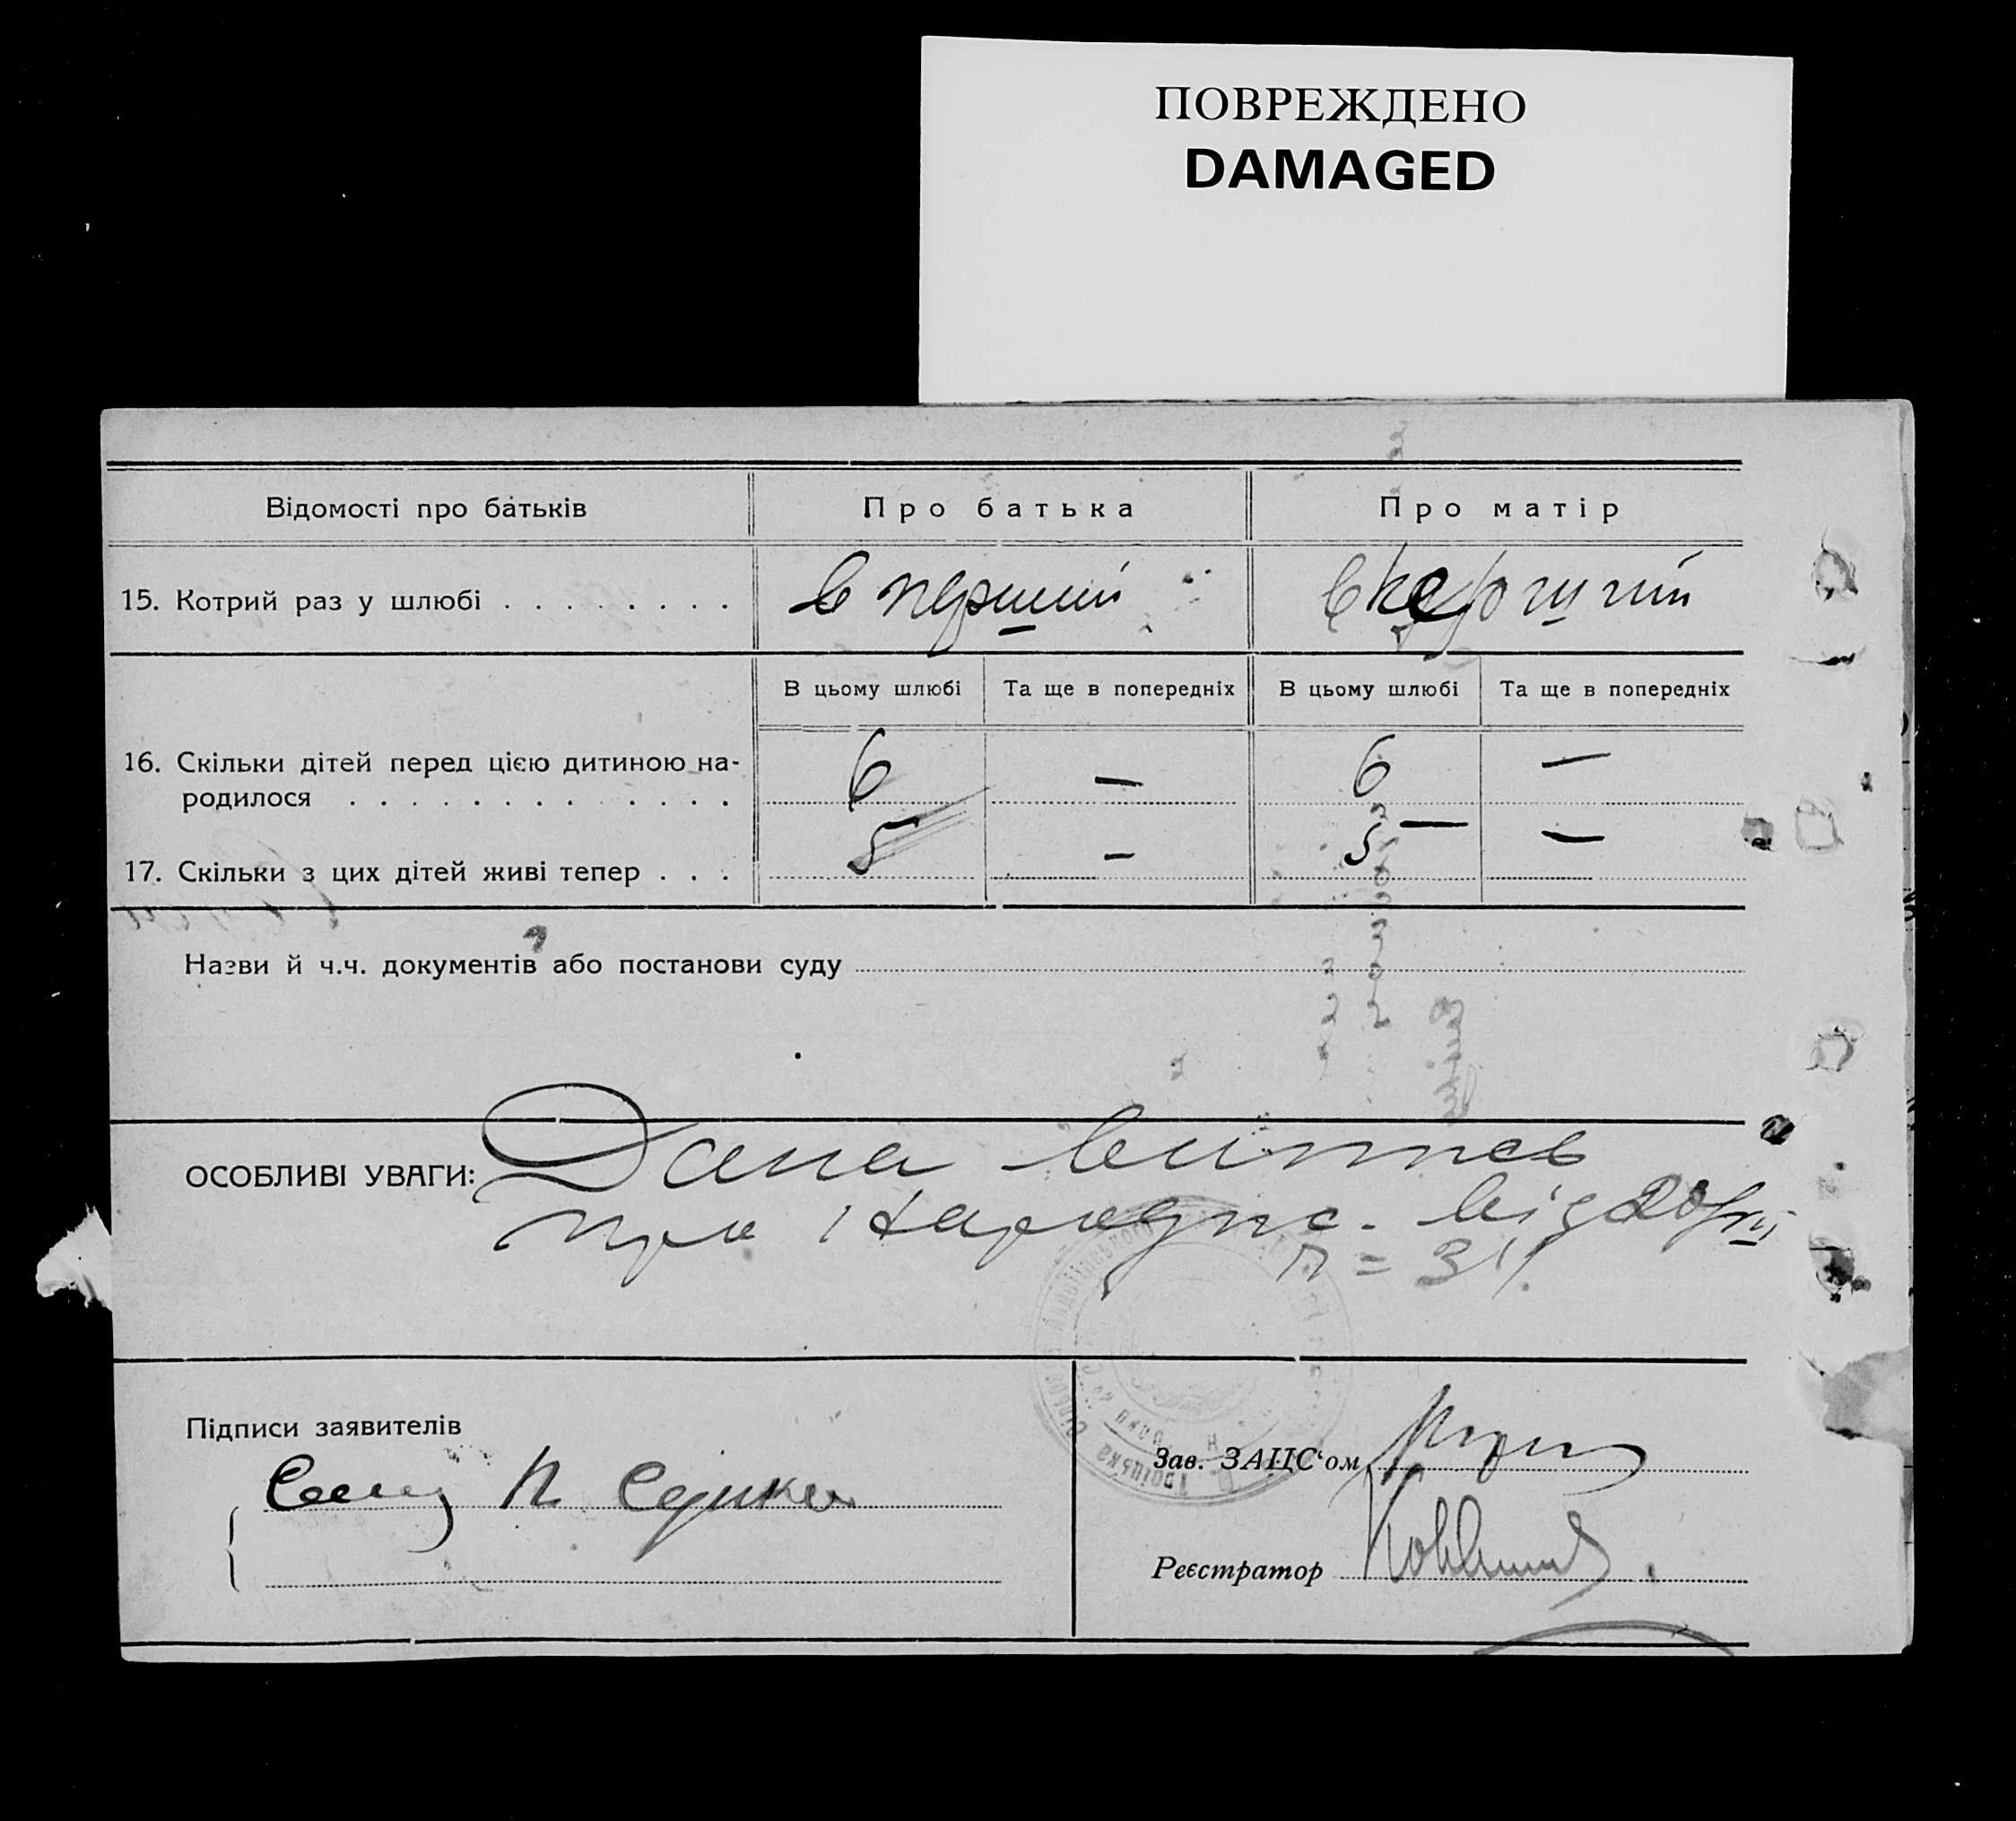 ПОВРЕЖДЕНО
DAMAGED
Відомості про батьків
Про батька
Про матір
15. Котрий раз у шлюбі . . . . . . . .
в перший
В цьому шлюбі
Та ще в попередніх
В цьому шлюбі
Та ще в попередніх
16. Скільки дітей перед цією дитиною на-
родилося . . . . . . . . . . . .
6
—
6
—
17. Скільки з цих дітей живі тепер . . .
5
—
5
—
Назви й ч.ч. документів або постанови суду
ОСОБЛИВІ УВАГИ:
Дана витяс
про народж. від 20/VI
Підписи заявителів
Зав. ЗАЦС‘ом
Реєстратор